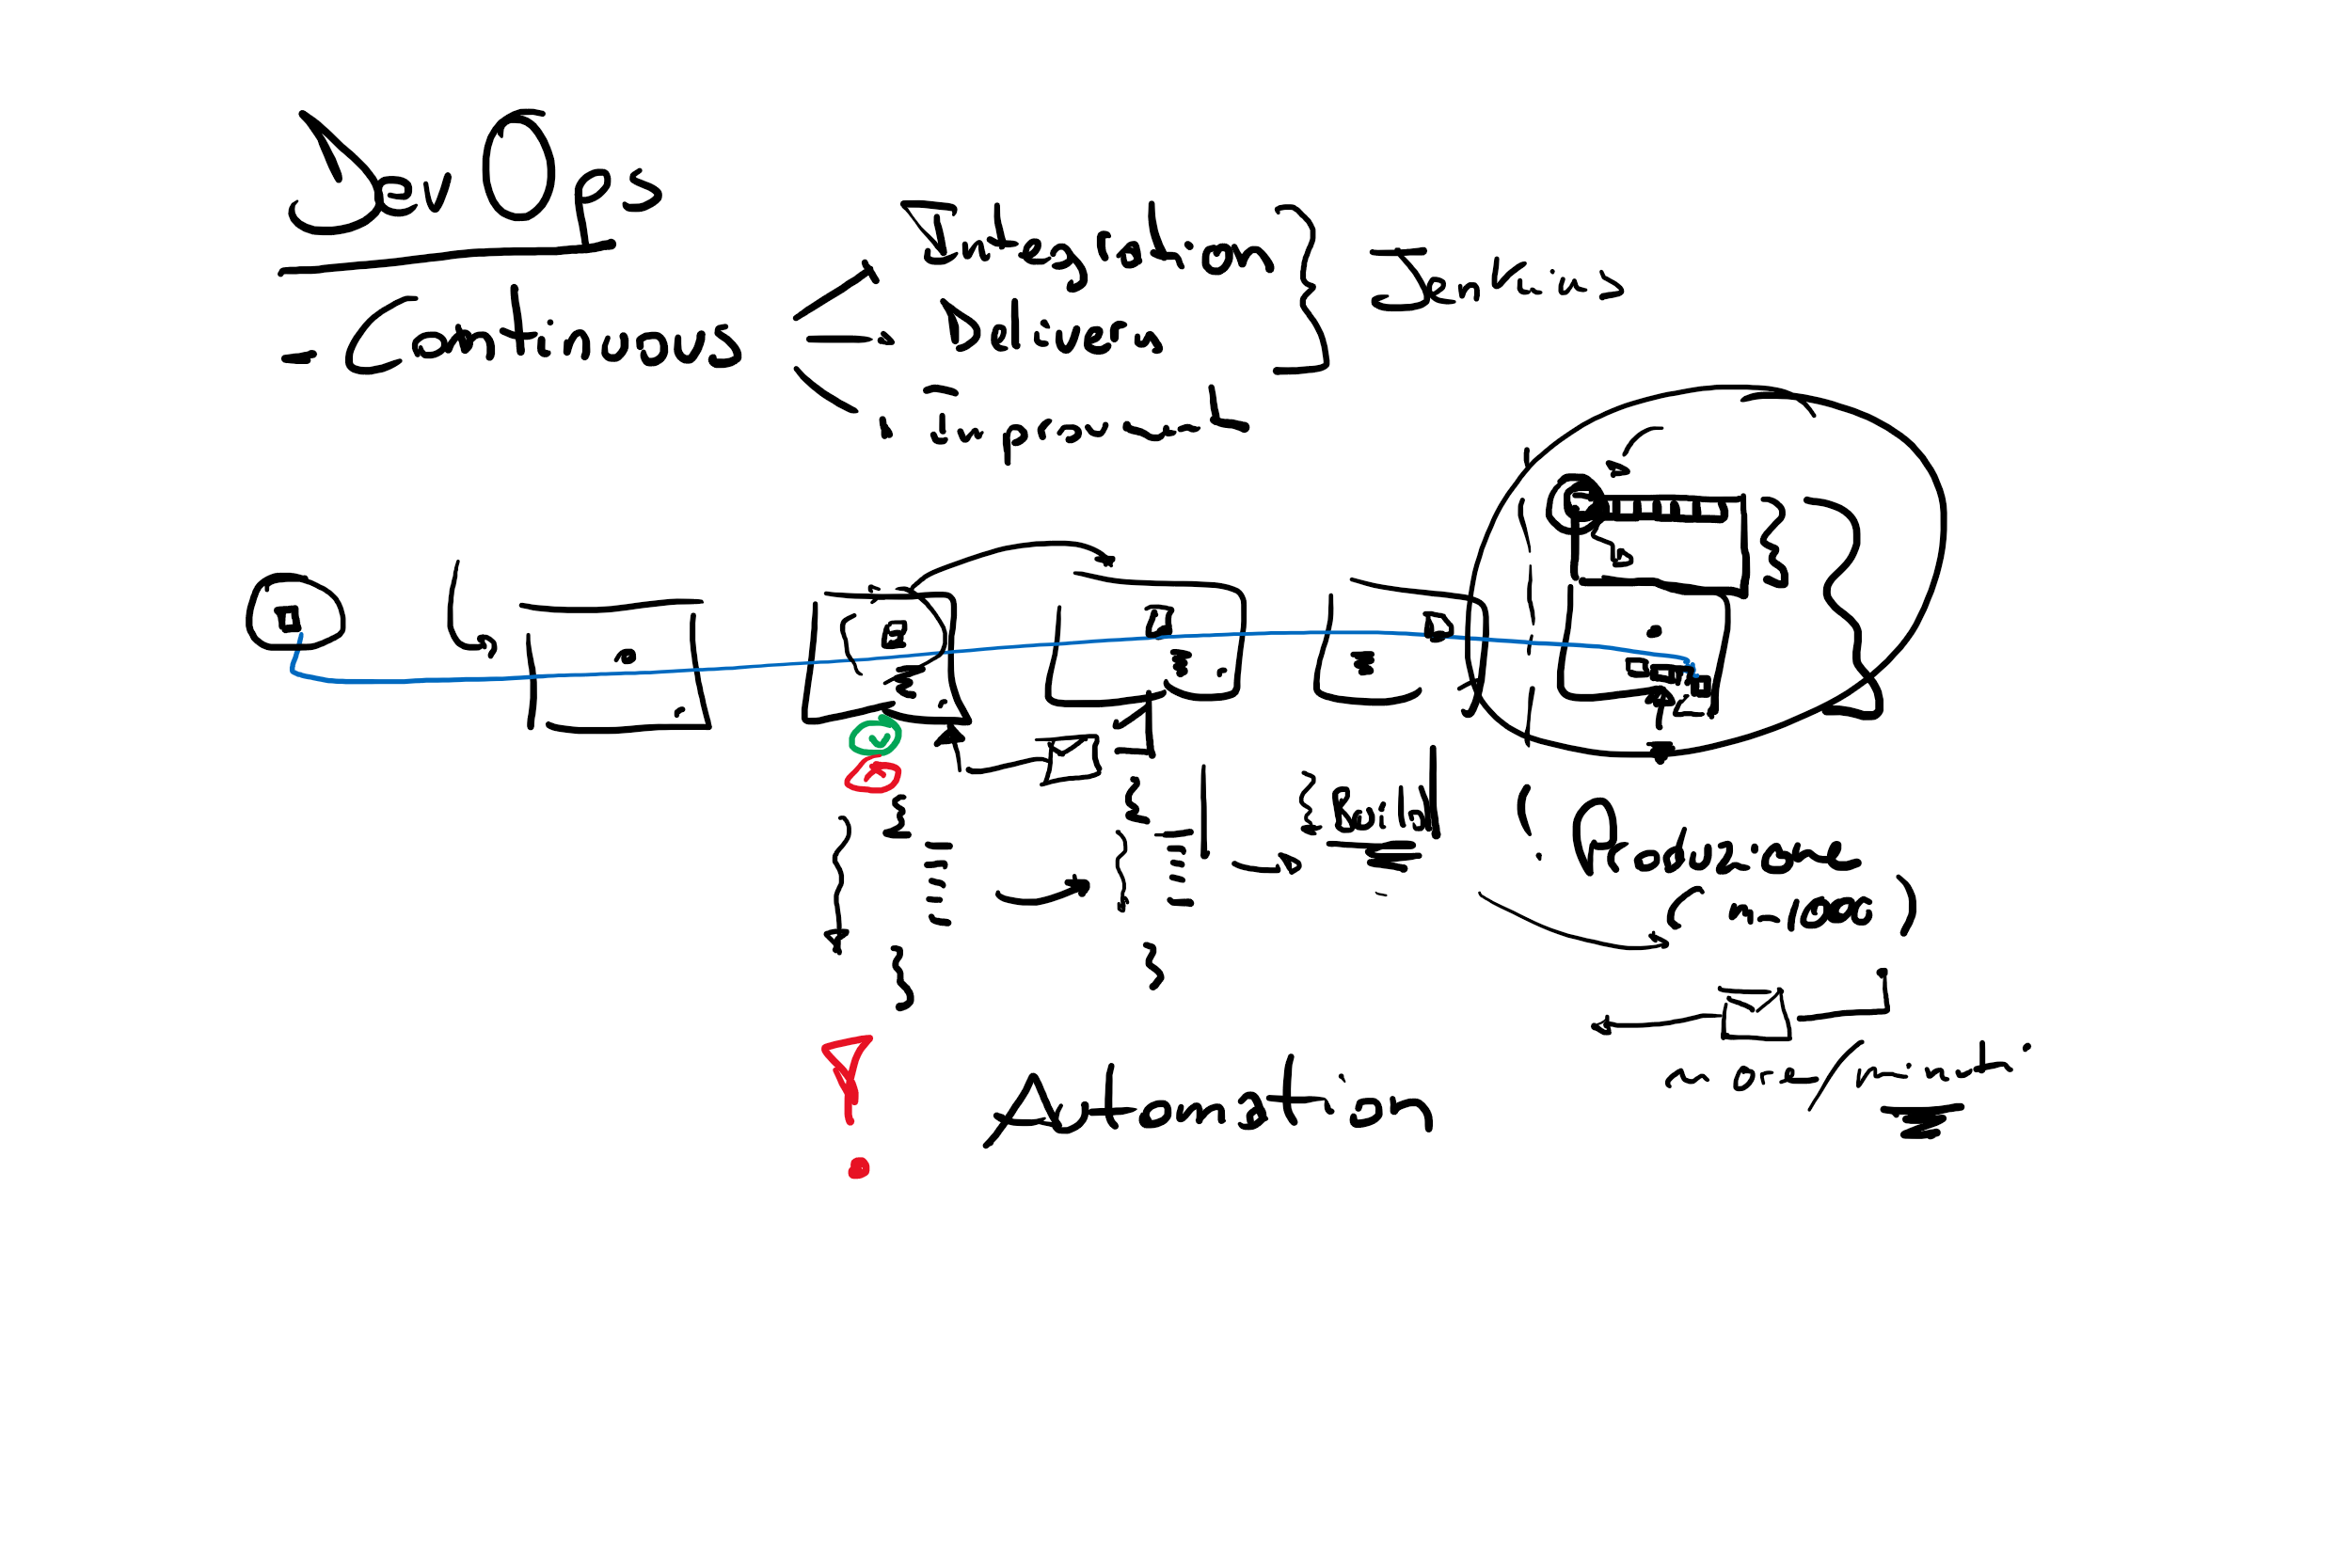 DevOps
- Continuous
Integration
Delivery
Improvement
Jenkins
Build
! Produzione
Automation